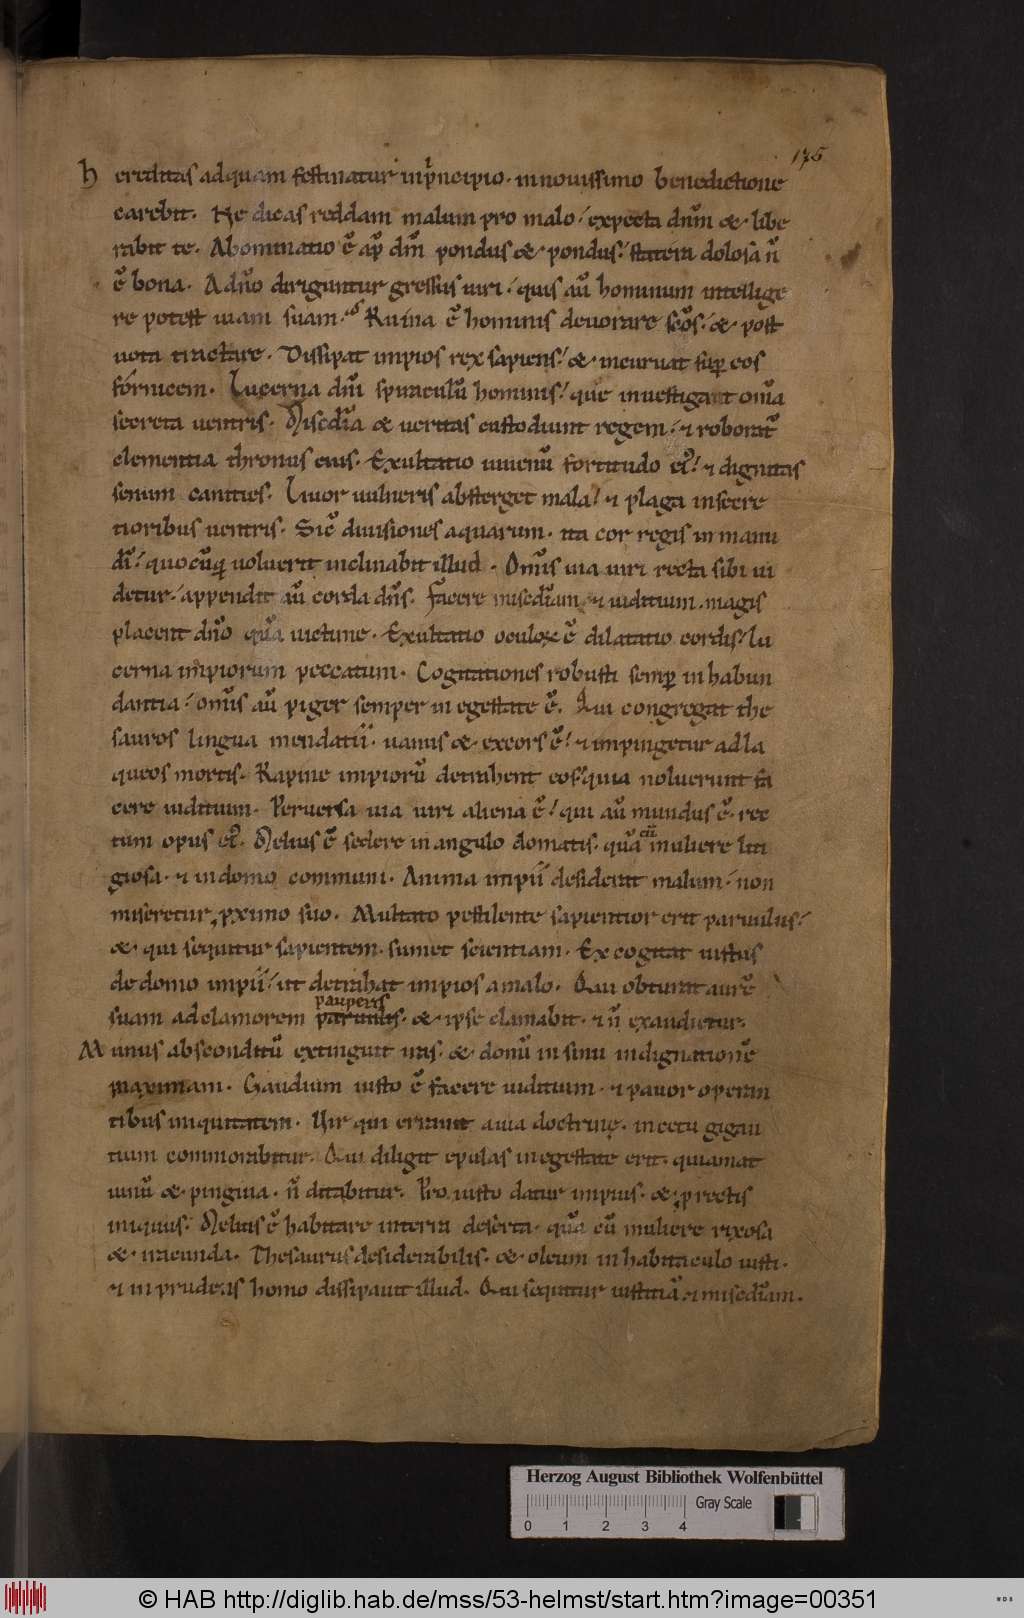 175
Hereditas ad quam festinatur in pͥncipio. in nouissimo benedictione
carebit. Ne dicas reddam malum pro malo. expecta dn̄m &. libe
rabit te. Abominatio ē ap̄ dm̄ pondus &. pondus. statera dolosa ñ
ē bona. A dño diriguntur gressus uiri. quis aū hominum intellige
re potest uiam suam. Ruina ē hominis deuorare scōs. &. post
uota tractare. Dissipat impios rex sapiens. &. incuruat sup̄ eos
fornicem. Lucerna dn̄i spiraculū hominis. que inuestigat om̄a
secreta uentris. Misc̄dia & ueritas custodiunt regem. ⁊ roborat᷑
clementia thronus eius. Exultatio iuuenū fortitudo eꝰ. ⁊ dignitas
senum canities. Liuor uulneris absterget mala. ⁊ plaga in secre
tioribus uentris. Sic̄ diuisiones aquarum. ita cor regis in manu
dn̄i. quocūq; uoluerit inclinabit illud. Om̄s uia uiri recta sibi ui
detur. appendit aū corda dn̄s. Facere misc̄diam ⁊ iuditium. magis
placent dño quā uictime. Exultatio oculoꝝ ē dilatatio cordis. lu
cerna impiorum peccatum. Cogitationes robusti semp̄ in habun
dantia. om̄s aū piger semper in egestate ē. Qui congregat the
sauros lingua mendatii. uanus &. excors ē. ⁊ impingetur ad la
queos mortis. Rapine impiorū detrahent eos. quia noluerunt fa
cere iuditium. Peruersa uia uiri aliena ē. qui aū mundus ē. rec
tum opus eꝰ. Melius ē sedere in angulo domatis. quā cū muliere liti
giosa. ⁊ in domo communi. Anima impii desiderat malum. non
miseretur ꝓximo suo. Multato pestilente sapientior erit paruulus.
&. qui sequitur sapientem. sumet scientiam. Excogitat iustus
de domo impii. ut detrahat impios a malo. Qui obturat aurē
pauperis
suam ad clamorem paruulis. &. ipse clamabit. ⁊ ñ exaudietur.
Munus absconditū extinguit iras. &. donū in sinu indignationē
maximam. Gaudium iusto ē facere iuditium. ⁊ pauor operan
tibus iniquitatem. Vir qui errauit a uia doctrine. in cetu gigan
tium commorabitur. Qui diligit epulas in egestate erit. qui amat
uinū &. pinguia. ñ ditabitur. Pro iusto datur impius. &. ꝓ rectis
iniquus. Melius ē habitare in terra deserta. quā cū muliere rixosa
&. iracunda. Thesaurus desiderabilis. &. oleum in habitaculo iusti.
⁊ inprudens homo dissipauit illud. Qui sequitur iustitiā ⁊ misc̄diam.
Herzog August Bibliothek Wolfenbüttel
Gray Scale
0 1 2 3 4
© HAB http://diglib.hab.de/mss/53-helmst/start.htm?image=00351